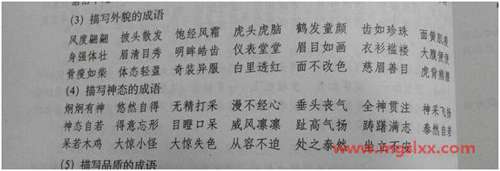 (3) 描写外貌的成语
风度翩翩 披头散发 饱经风霜 虎头虎脑 鹤发童颜 齿如珍珠 面黄肌瘦
身强体壮 眉清目秀 明眸皓齿 仪表堂堂 眉目如画 衣衫褴楼 大腹便便
骨瘦如柴 体态轻盈 奇装异服 白里透红 面不改色 慈眉善目 虎背熊腰
(4) 描写神态的成语
炯炯有神 悠然自得 无精打采 漫不经心 垂头丧气 全神贯注 神采飞扬
神态自若 得意忘形 目瞪口呆 威风凛凛 趾高气扬 踌躇满志 泰然自若
呆若木鸡 大惊小怪 大惊失色 从容不迫 处之泰然 坐立不安
www.mgslxx.com
(5) 描写品质的成语